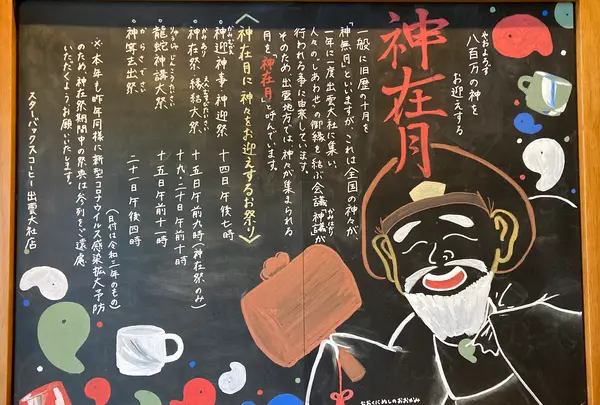 神在月
やおよろず
八百万の神を
お迎えする
一般に旧歴の十月を
「神無月」といいますが、これは全国の神々が、
一年に一度出雲大社に集い、
人々の"しあわせ"の御縁を結ぶ会議「神議」が
かみはかり
行われる事に由来しています。
そのため出雲地方では、神々が集まられる
月を「神在月」と呼んでいます。
〈神在月に神々をお迎えするお祭り〉
・神迎神事 神迎祭 十四日午後七時
・神在祭・縁結大祭 十五日午前九時(神在祭のみ)
十九、二十日午前十時
・龍蛇神講大祭 十五日午前十一時
・神等去出祭 二十一日午後四時
からさでさい
(日付は令和三年のもの)
※本年も昨年同様に新型コロナウイルス感染拡大予防
のため、神在祭期間中の祭典は参列をご遠慮
いただくようお願いいたします。
スターバックスコーヒー出雲大社店
おおくにぬしのおおかみ